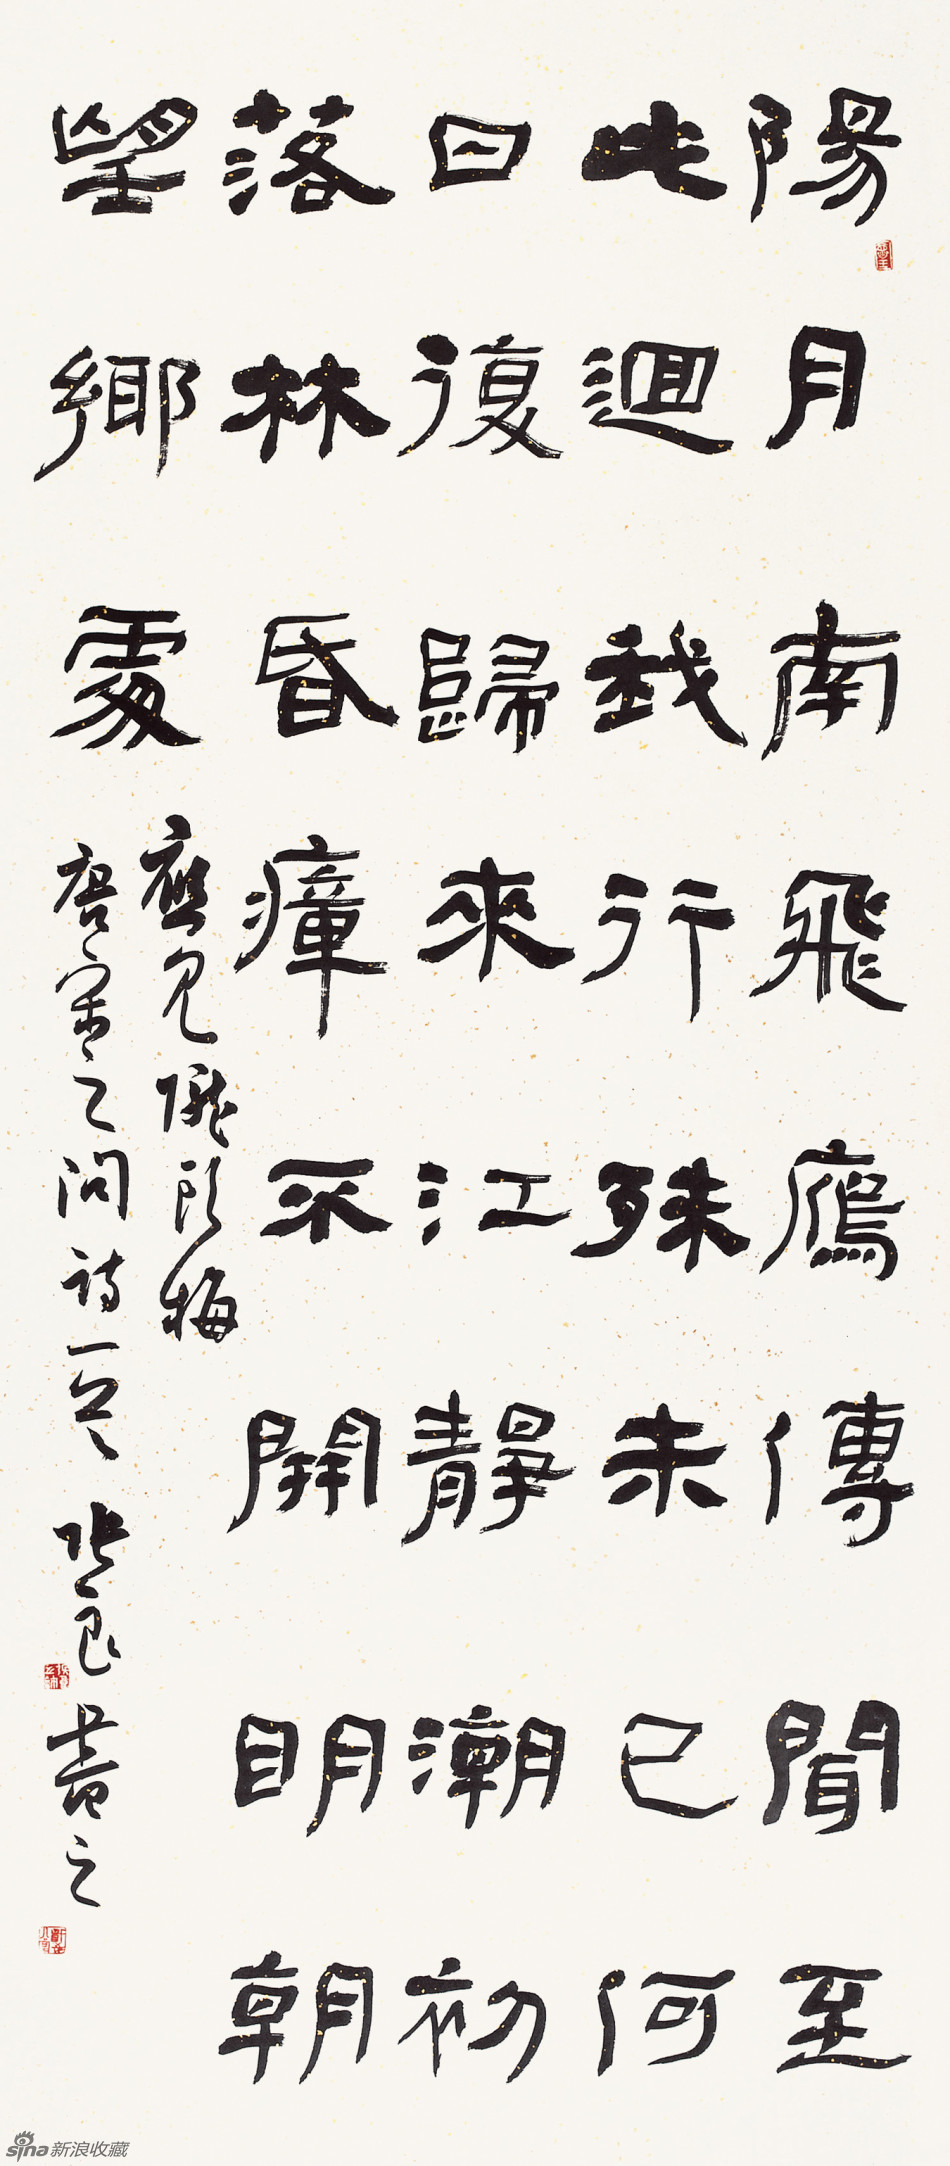 陽月南飛鴈傳聞至
此迴我行殊未已何
日復歸來江靜潮初
落林昏瘴不開明朝
望鄉處
應見隴頭梅
唐宋之問詩一首 張良書之
sina新浪收藏